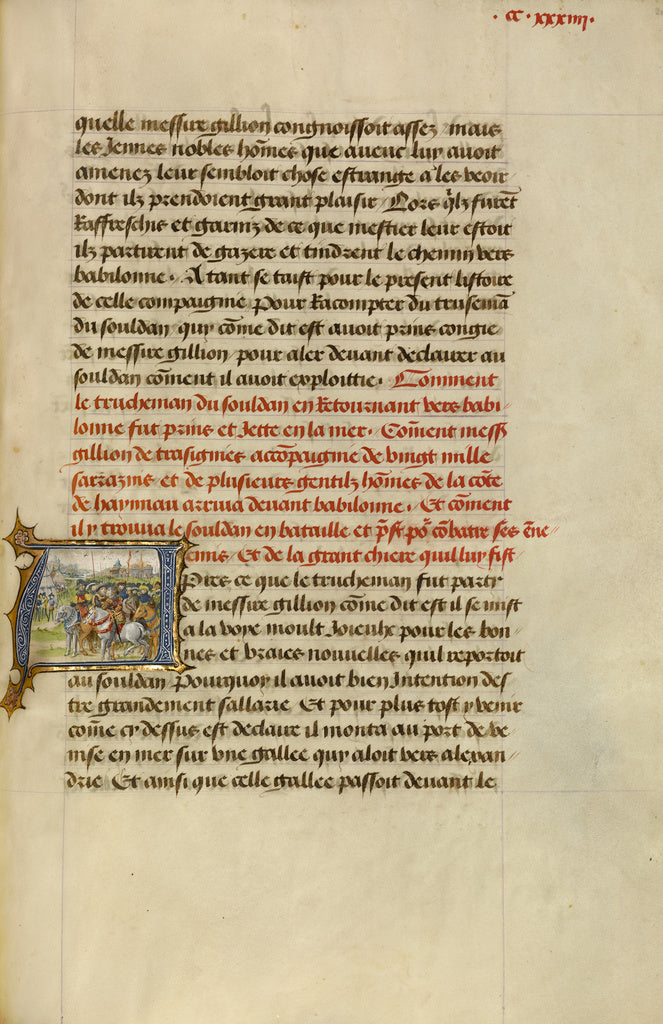 · CC · xxxiiij ·
quelle messire gillion congnoissoit assez / mais
les Jennes nobles hõmes que aveuc luy avoit
amenez leur sembloit chose estrange a les veoir
dont ilz prendoient grant plaisir / Lors q̃lz furẽt
Raffreschis et garniz de ce que mestier leur estoit
ilz partirent de gazere et tindrent le chemin vers
babilonne · A tant se taist pour le present listoire
de celle compaignie / Pour Racompter du truseman̄
du souldan / quy cõme dit est avoit prins congie
de messire gillion / pour aler devant declairer au
souldan cõment il avoit exploittie · Comment
le trucheman du souldan en Retournant vers babi/
lonne fut prins et Jette en la mer · Cõment mess̃
gillion de trasignies accõpaignie de vingt mille
sarrazins et de plusieurs gentilz hõmes de la cõte
de haynnau arriva devant babilonne · Et cõment
il y trouva le souldan en bataille et p̃st po᷑ cõbatre ses ẽne/
emis / Et de la grant chiere quil luy fist
Apres ce que le trucheman fut party
de messire gillion cõme dit est il se mist
a la voye moult Joieulx pour les bon/
nes et vraies nouvelles quil reportoit
au souldan / Pourquoy il avoit bien Intention des/
tre grandement sallarie / Et pour plus tost y venir
cõme cy dessus est declaire il monta au port de ve/
nise en mer sur une gallee quy aloit vers alexan/
drie / Et ainsi que celle gallee passoit devant le